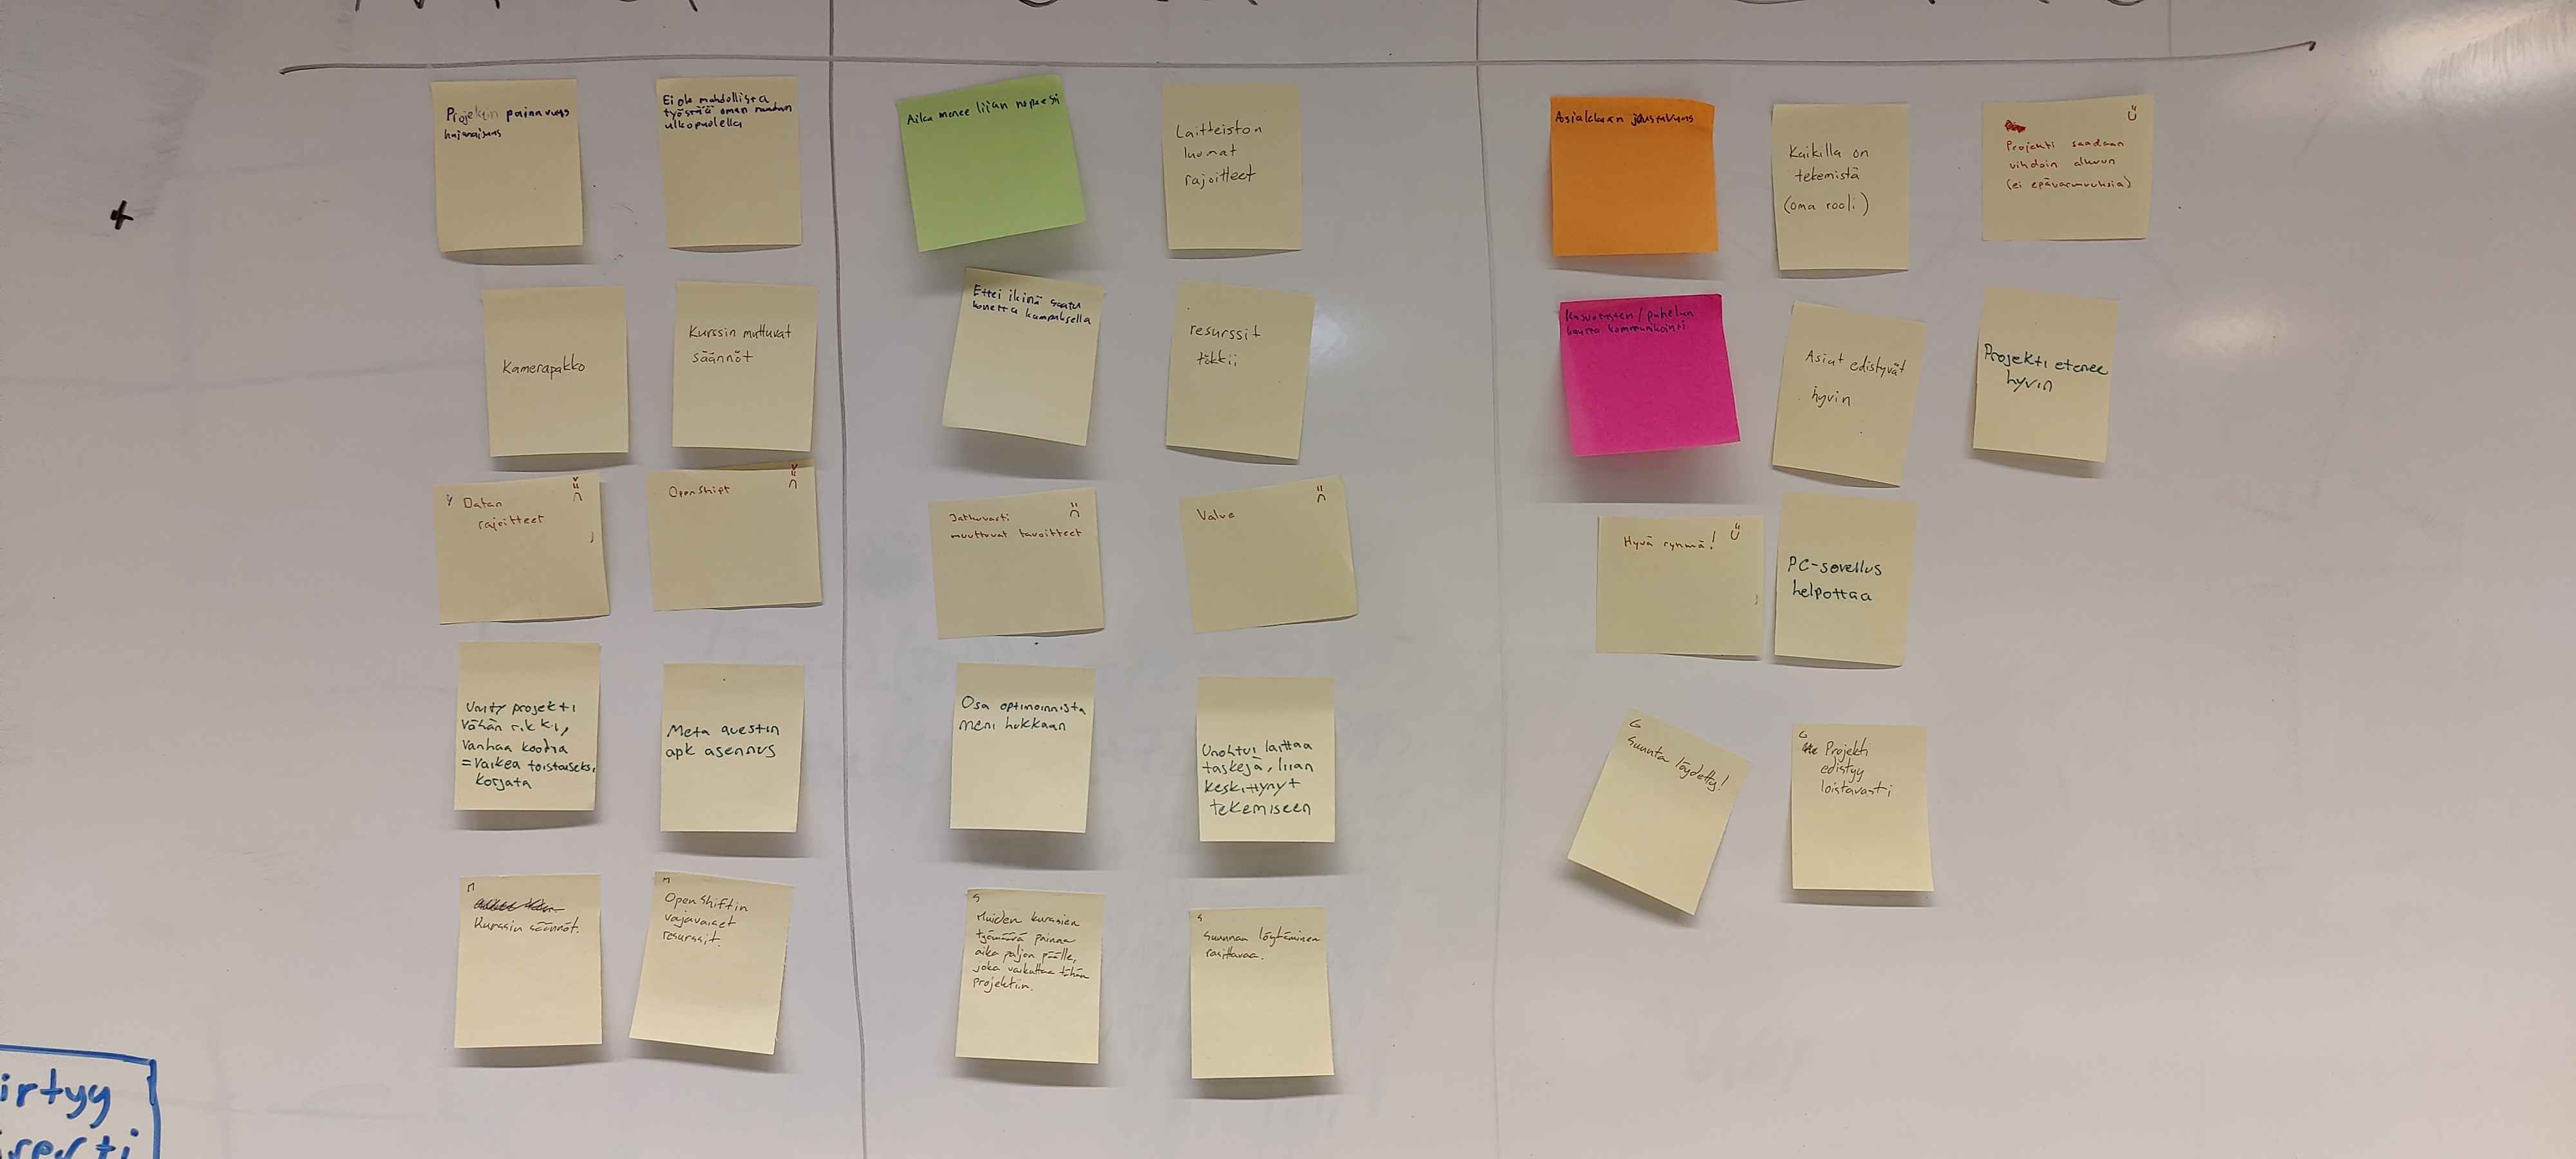 Projektin painavuus
hajanaisuus
Ei ole mahdollista
työstää oman ruudun
ulkopuolella
Kamerapakko
Kurssin muttuvat
säännöt
Datan
rajoitteet
OpenShift
Unity projekti
vähän rikki,
vanhaa koodia
=vaikea toistaiseksi
korjata
Meta questin
apk asennus
Kurssin säännöt.
OpenShiftin
vajavaiset
resurssit.
Aika menee liian nopeesti
Laitteiston
luomat
rajoitteet
Ettei ikinä saatu
konetta kampuksella
resurssit
tökkii
Jatkuvasti
muuttuvat tavoitteet
Valve
Osa optimoinnista
meni hukkaan
Unohtui laittaa
taskejä, liian
keskittynyt
tekemiseen
Muiden kurssien
työmäärä painaa
aika paljon päälle,
joka vaikuttaa tähän
projektiin.
Suunnan löytäminen
rasittavaa.
Asiakkaan joustavuus
Kaikilla on
tekemistä
(oma rooli)
Projekti saadaan
vihdoin alkuun
(ei epävarmuuksia)
Kasvotusten/puhelun
kautta kommunikointi
Asiat edistyvät
hyvin
Projekti etenee
hyvin
Hyvä ryhmä!
PC-sovellus
helpottaa
Suunta löydetty!
Projekti
edistyy
loistavasti
irtyy